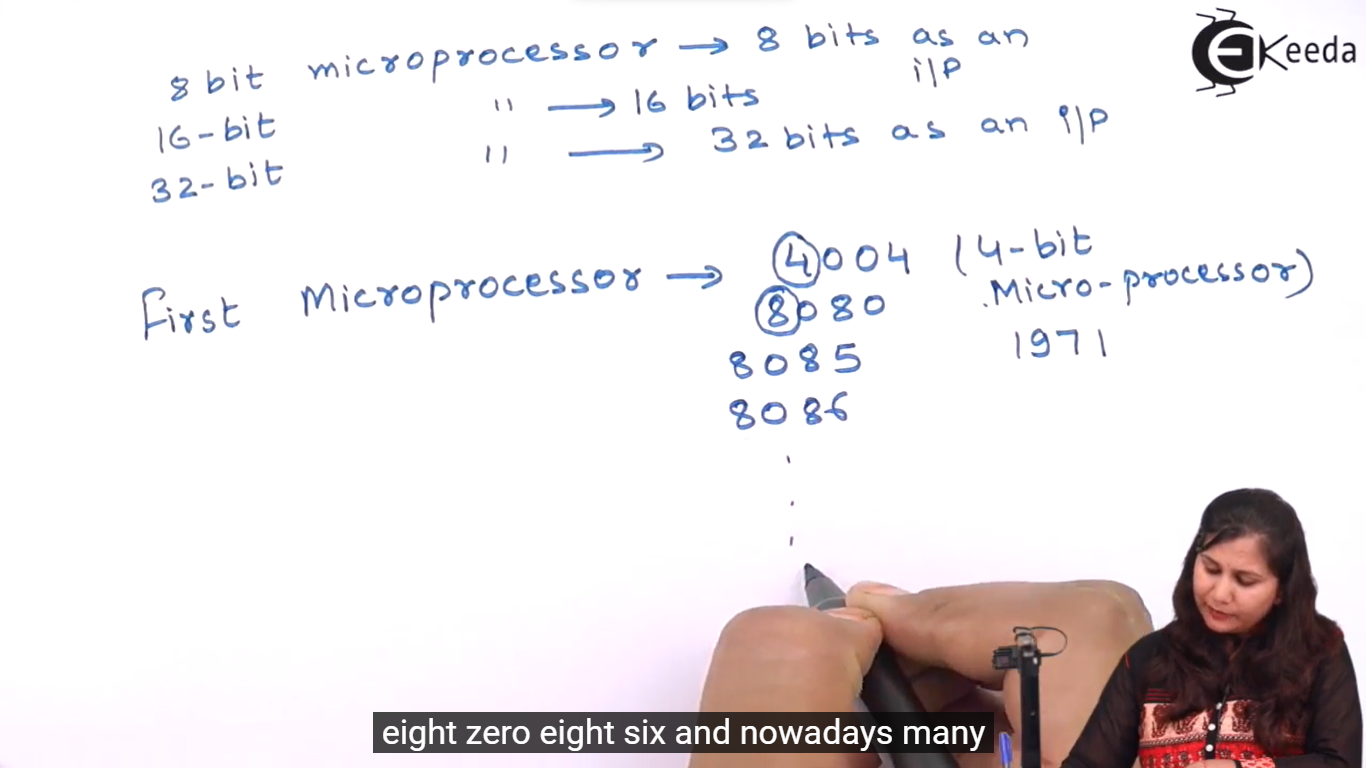 8 bit microprocessor → 8 bits as an i/p
16-bit " → 16 bits
32-bit " → 32 bits as an i/p
EKeeda
First Microprocessor → 4004 (4-bit Micro-processor)
8080
1971
8085
8086
eight zero eight six and nowadays many